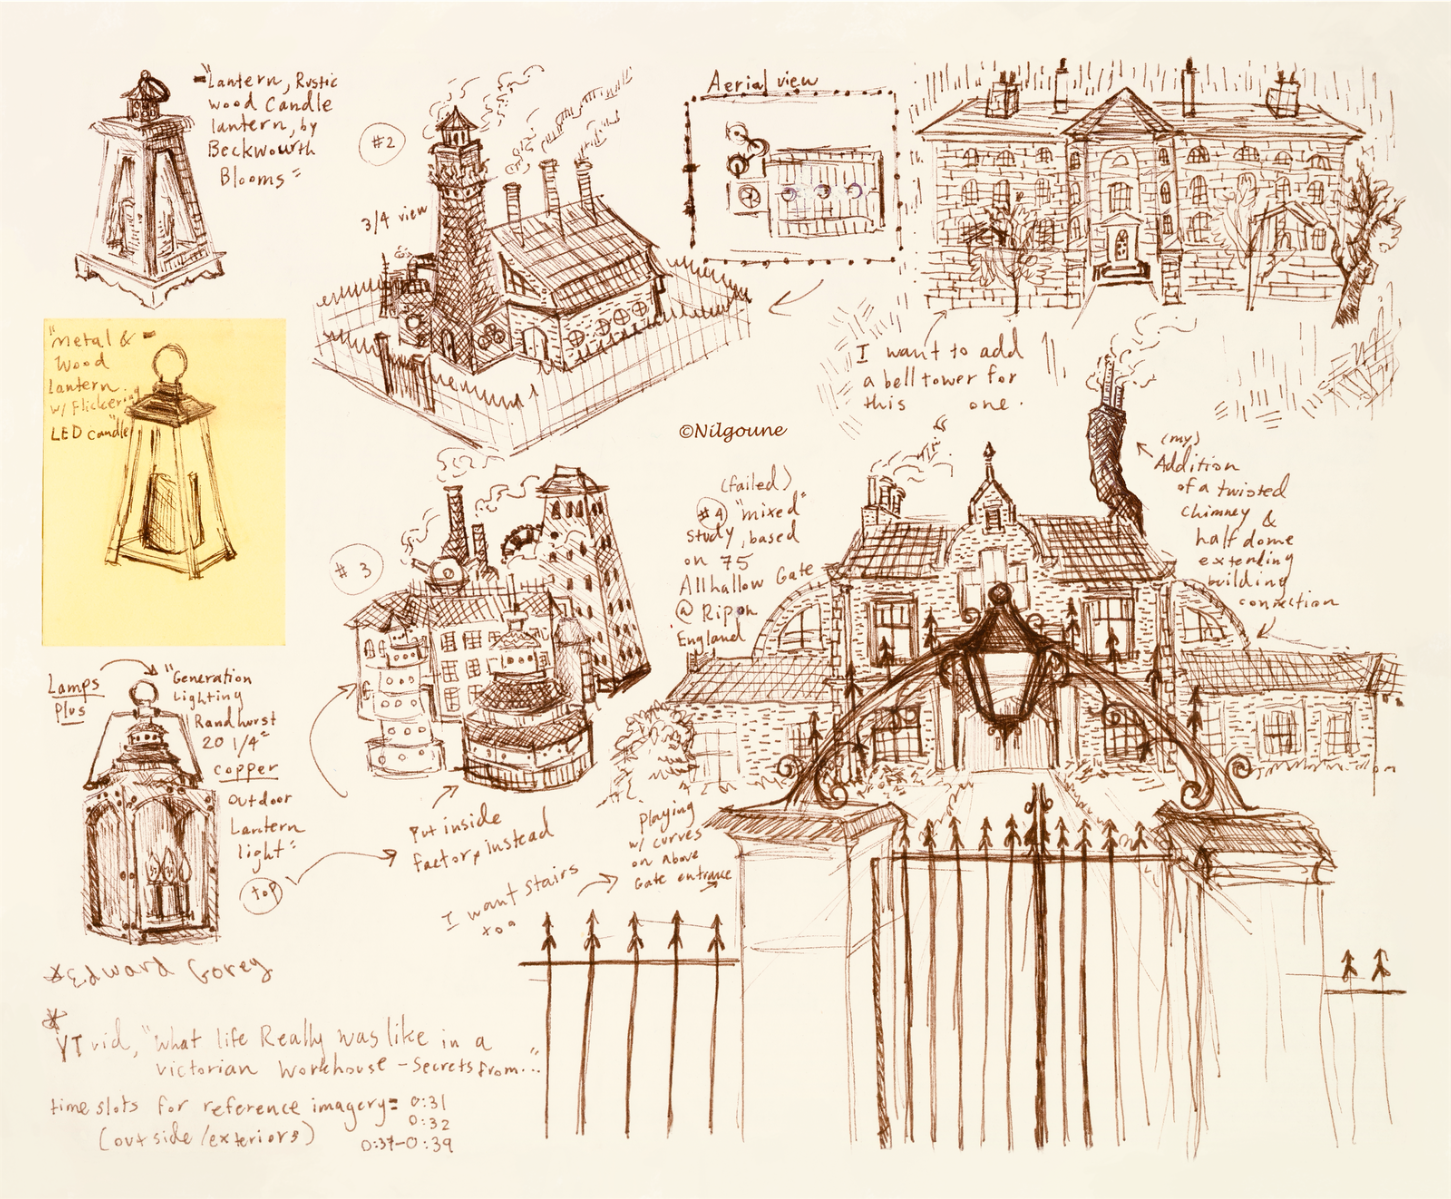 "Lantern, Rustic
Wood Candle
lantern, by
Beckwourth
Blooms"
#2
3/4 view
Aerial view
I want to add
a bell tower for
this one.
"Metal &
Wood
Lantern
w/ Flickering
LED candle"
©Nilgoune
(failed)
#4 "mixed"
study, based
on 75
Allhallow Gate
@ Ripon
England
(my)
Addition
of a twisted
chimney &
half dome
extending
building
connection
#3
Lamps
Plus
"Generation
Lighting
Randhurst
20 1/4"
copper
Outdoor
Lantern
light"
top
Put inside
factory instead
Playing
w/ curves
on Above
Gate entrance
I want stairs
too
*Edward Gorey
*
YT vid, "What life Really was like in a
victorian Workhouse - Secrets from..."
time slots for reference imagery= 0:31
(outside/exteriors) 0:32
0:37-0:39